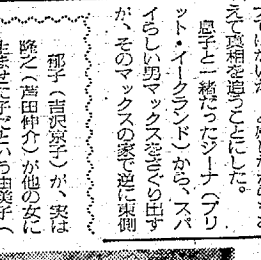 えて真相を追うことにした。
息子と一緒だったジーナ（ブリ
ット・イークランド）から、スパ
イらしい男マックスをさぐり出す
が、そのマックスの家で逆に東側
郁子（吉沢京子）が、実は
隆之（芦田伸介）が他の女に
生ませた子だという由美子（